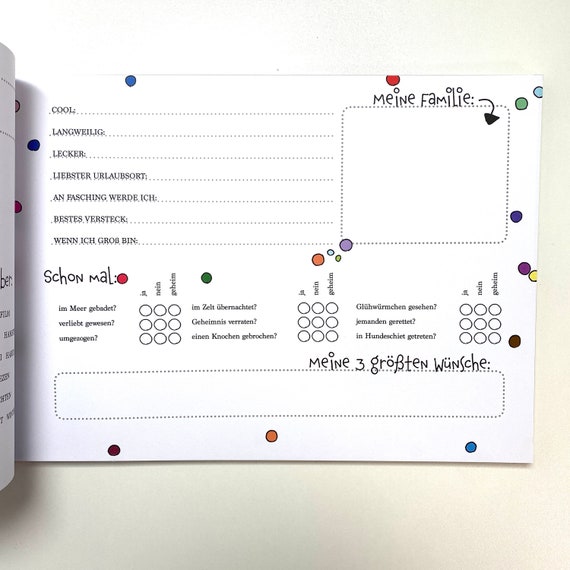 meine Familie:
COOL:
LANGWEILIG:
LECKER:
LIEBSTER URLAUBSORT:
AN FASCHING WERDE ICH:
BESTES VERSTECK:
WENN ICH GROß BIN:
SCHON MAL:
ja nein geheim
im Meer gebadet?
verliebt gewesen?
umgezogen?
ja nein geheim
im Zelt übernachtet?
Geheimnis verraten?
einen Knochen gebrochen?
ja nein geheim
Glühwürmchen gesehen?
jemanden gerettet?
in Hundeschiet getreten?
meine 3 größten Wünsche: